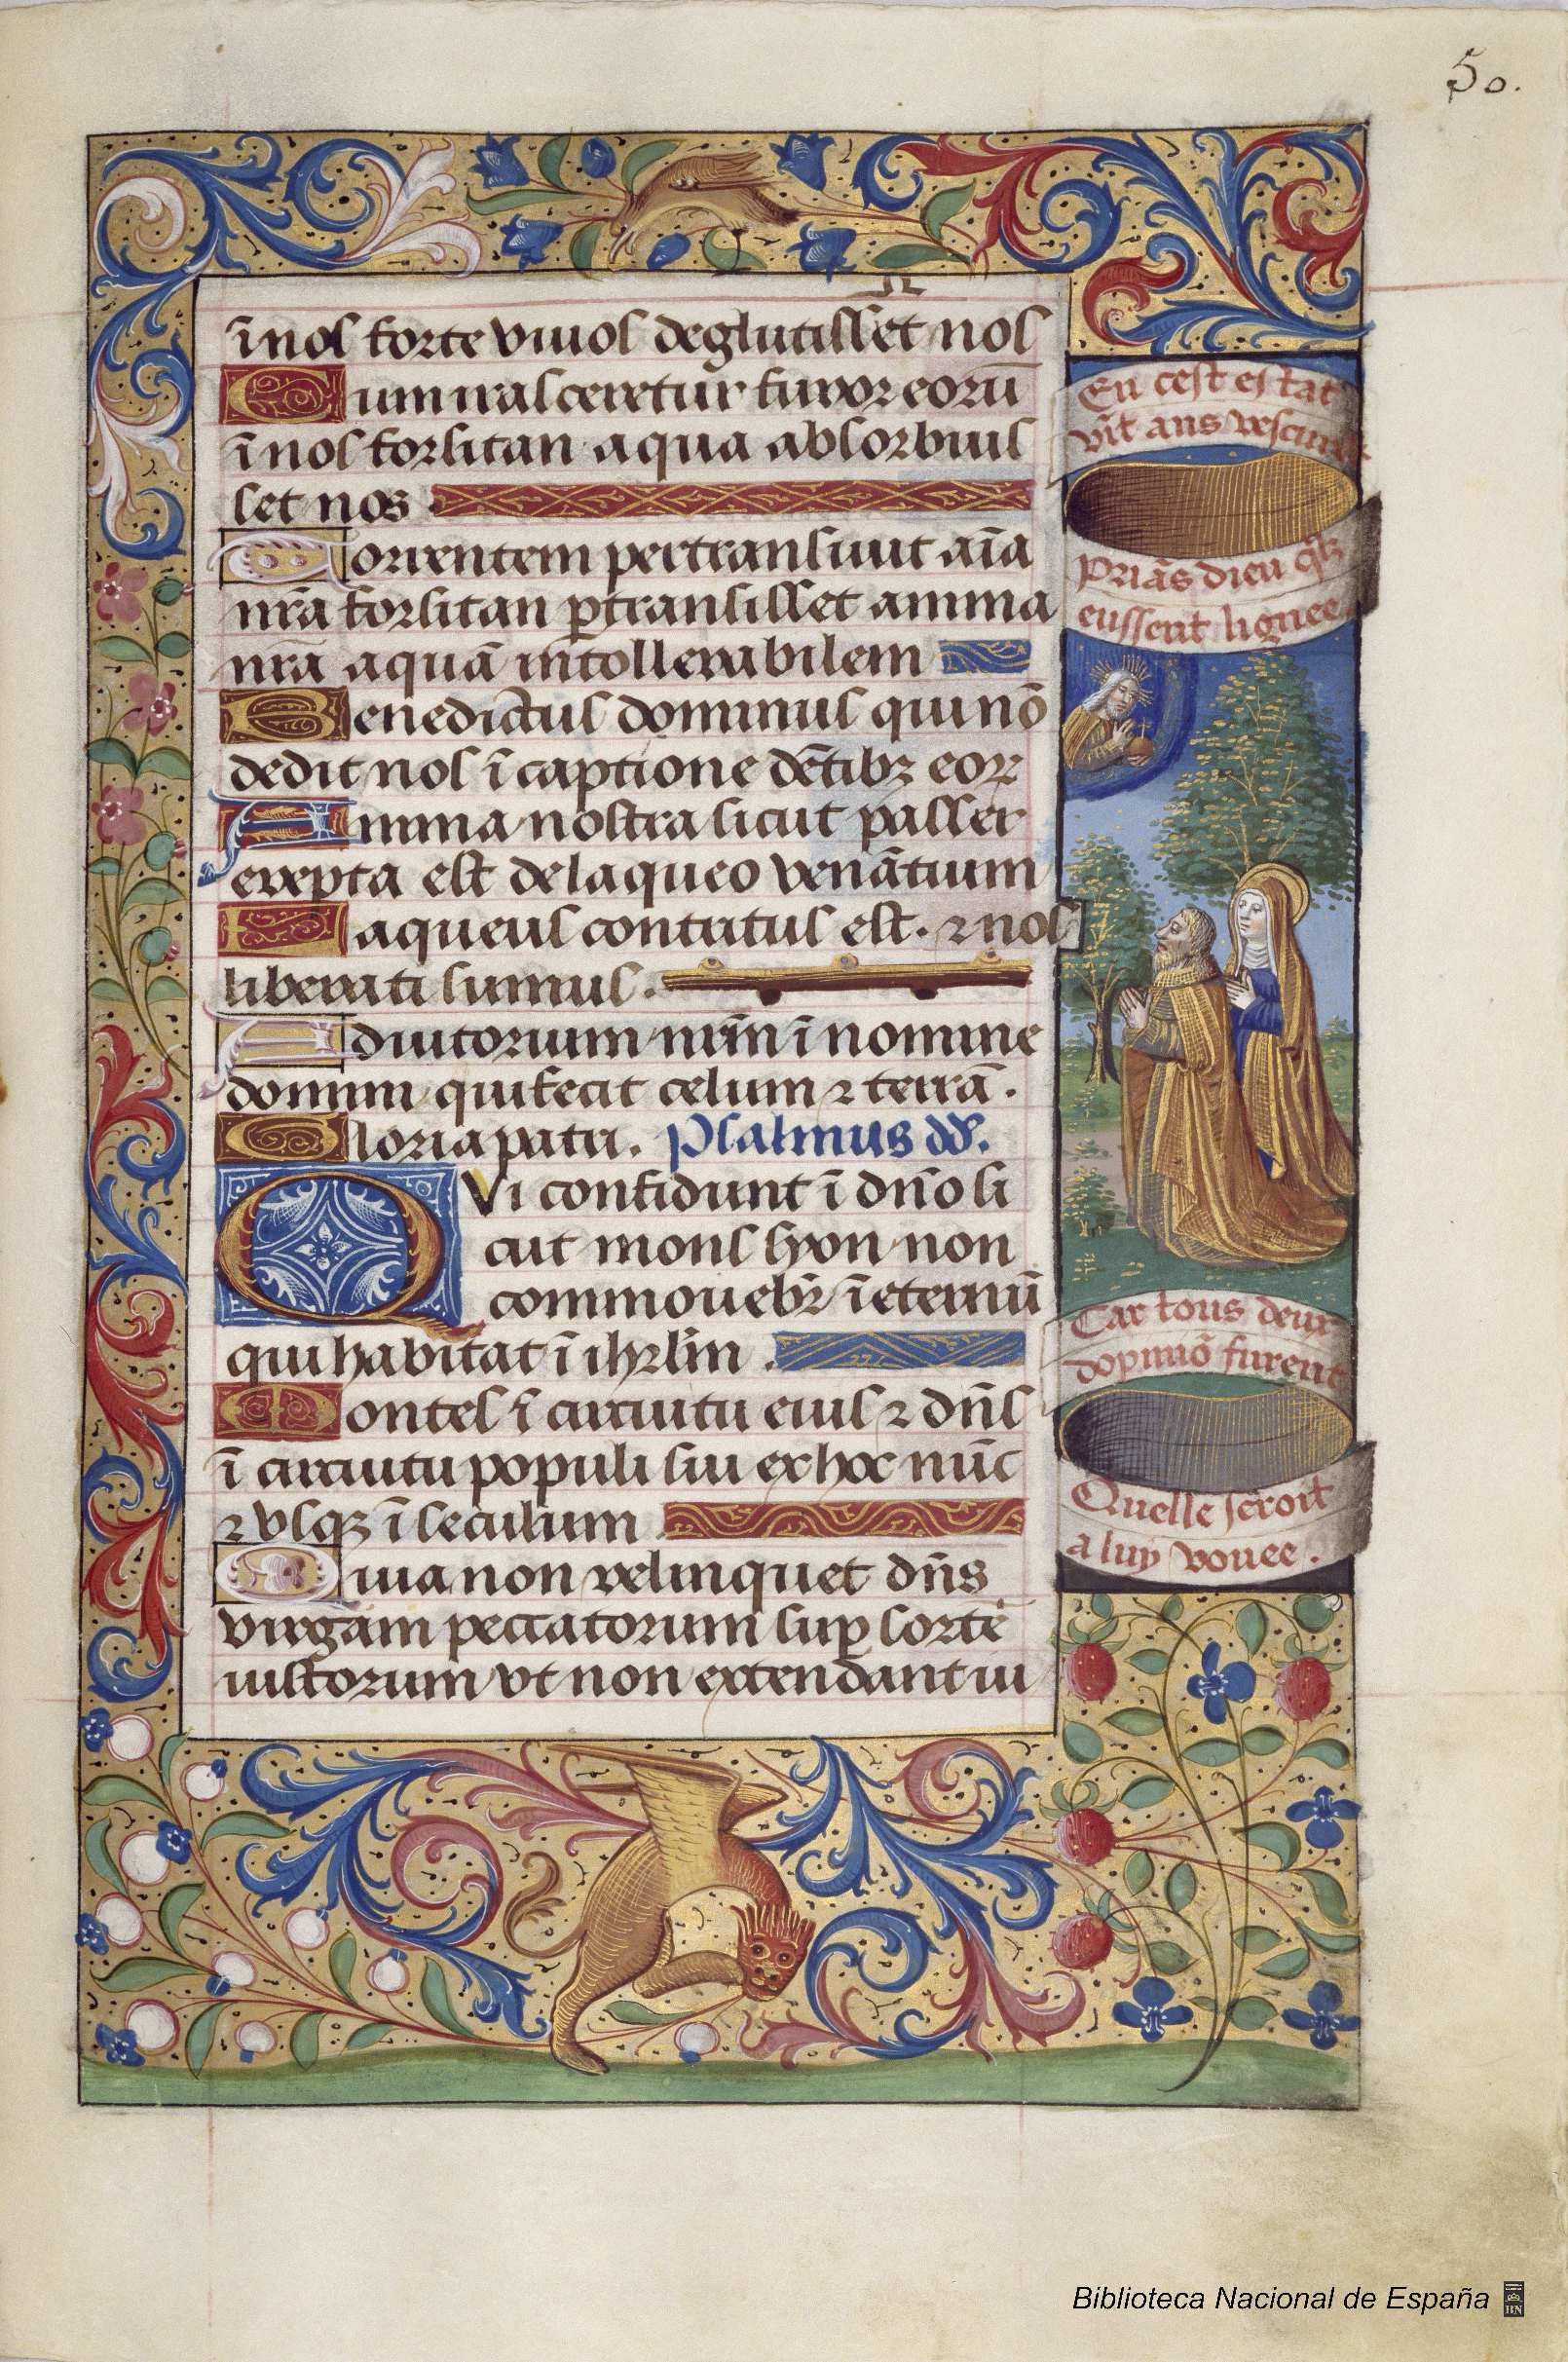 50.
ī nos forte viuos deglutisset nos
Cum irasceretur furor eorū
ī nos forsitan aqua absorbuis
set nos
Torrentem pertransiuit aīa
nrā forsitan ꝑtransisset anima
nrā aquā intollerabilem
Benedictus dominus qui nō
dedit nos ī captione dētibꝫ eoꝝ
Anima nostra sicut passer
erepta est de laqueo venātium
Laqueus contritus est. ⁊ nos
liberati sumus.
Adiutorium nrm̄ ī nomine
domini qui fecit celum ⁊ terrā.
Gloria patri. Psalmus dd̄.
QVi confidunt ī dn̄o si
cut mons syon non
commouebr̄ ī eternū
qui habitat ī ihrlm̄.
Montes ī circuitu eius ⁊ dn̄s
ī circuitu populi sui ex hoc nūc
⁊ vsqꝫ ī seculum.
Quia non relinquet dn̄s
virgam peccatorum suꝑ sortē
iustorum vt non extendant iu
En cest estat
vīt ans
Priās dieu qͥlz
eussent lignee
Car tous deux
dopiniō furent
Quelle seroit
a luy vouee.
Biblioteca Nacional de España